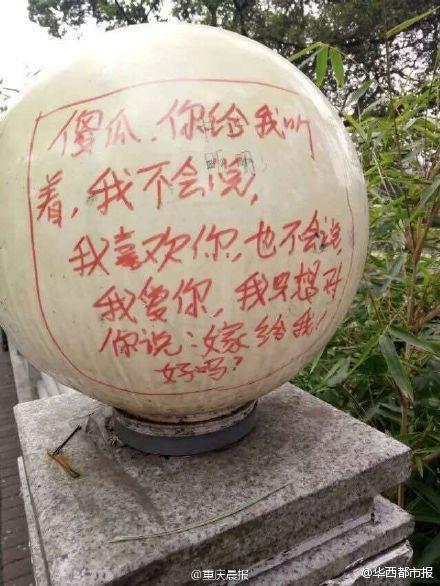 傻瓜，你给我听
着，我不会说，
我喜欢你，也不会说，
我爱你，我只想对
你说：嫁给我！
好吗？
@重庆晨报
@华西都市报